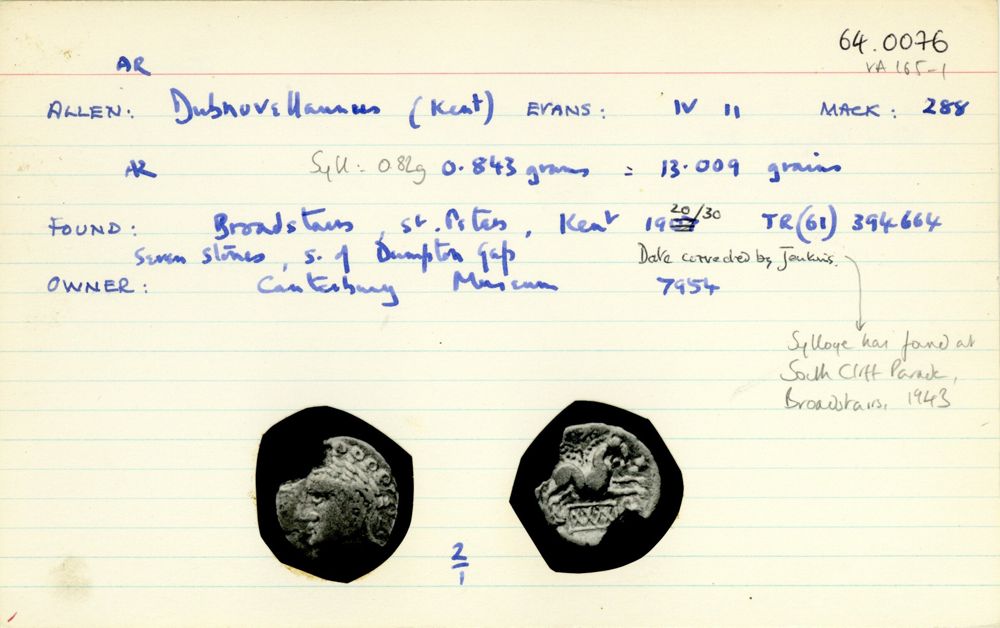 64.0076
VA 165-1
AR
ALLEN: Dubnovellaunus (Kent) EVANS: IV 11 MACK: 288
AR Syll: 0.82g 0.843 grams = 13.009 grains
FOUND: Broadstairs, St. Peters, Kent 19 20/30 TR(61) 394664
Seven Stones, S. of Dumpton Gap Date corrected by Jenkins.
OWNER: Canterbury Museum 7954
Sylloge has found at
South Cliff Parade,
Broadstairs, 1943
2/1